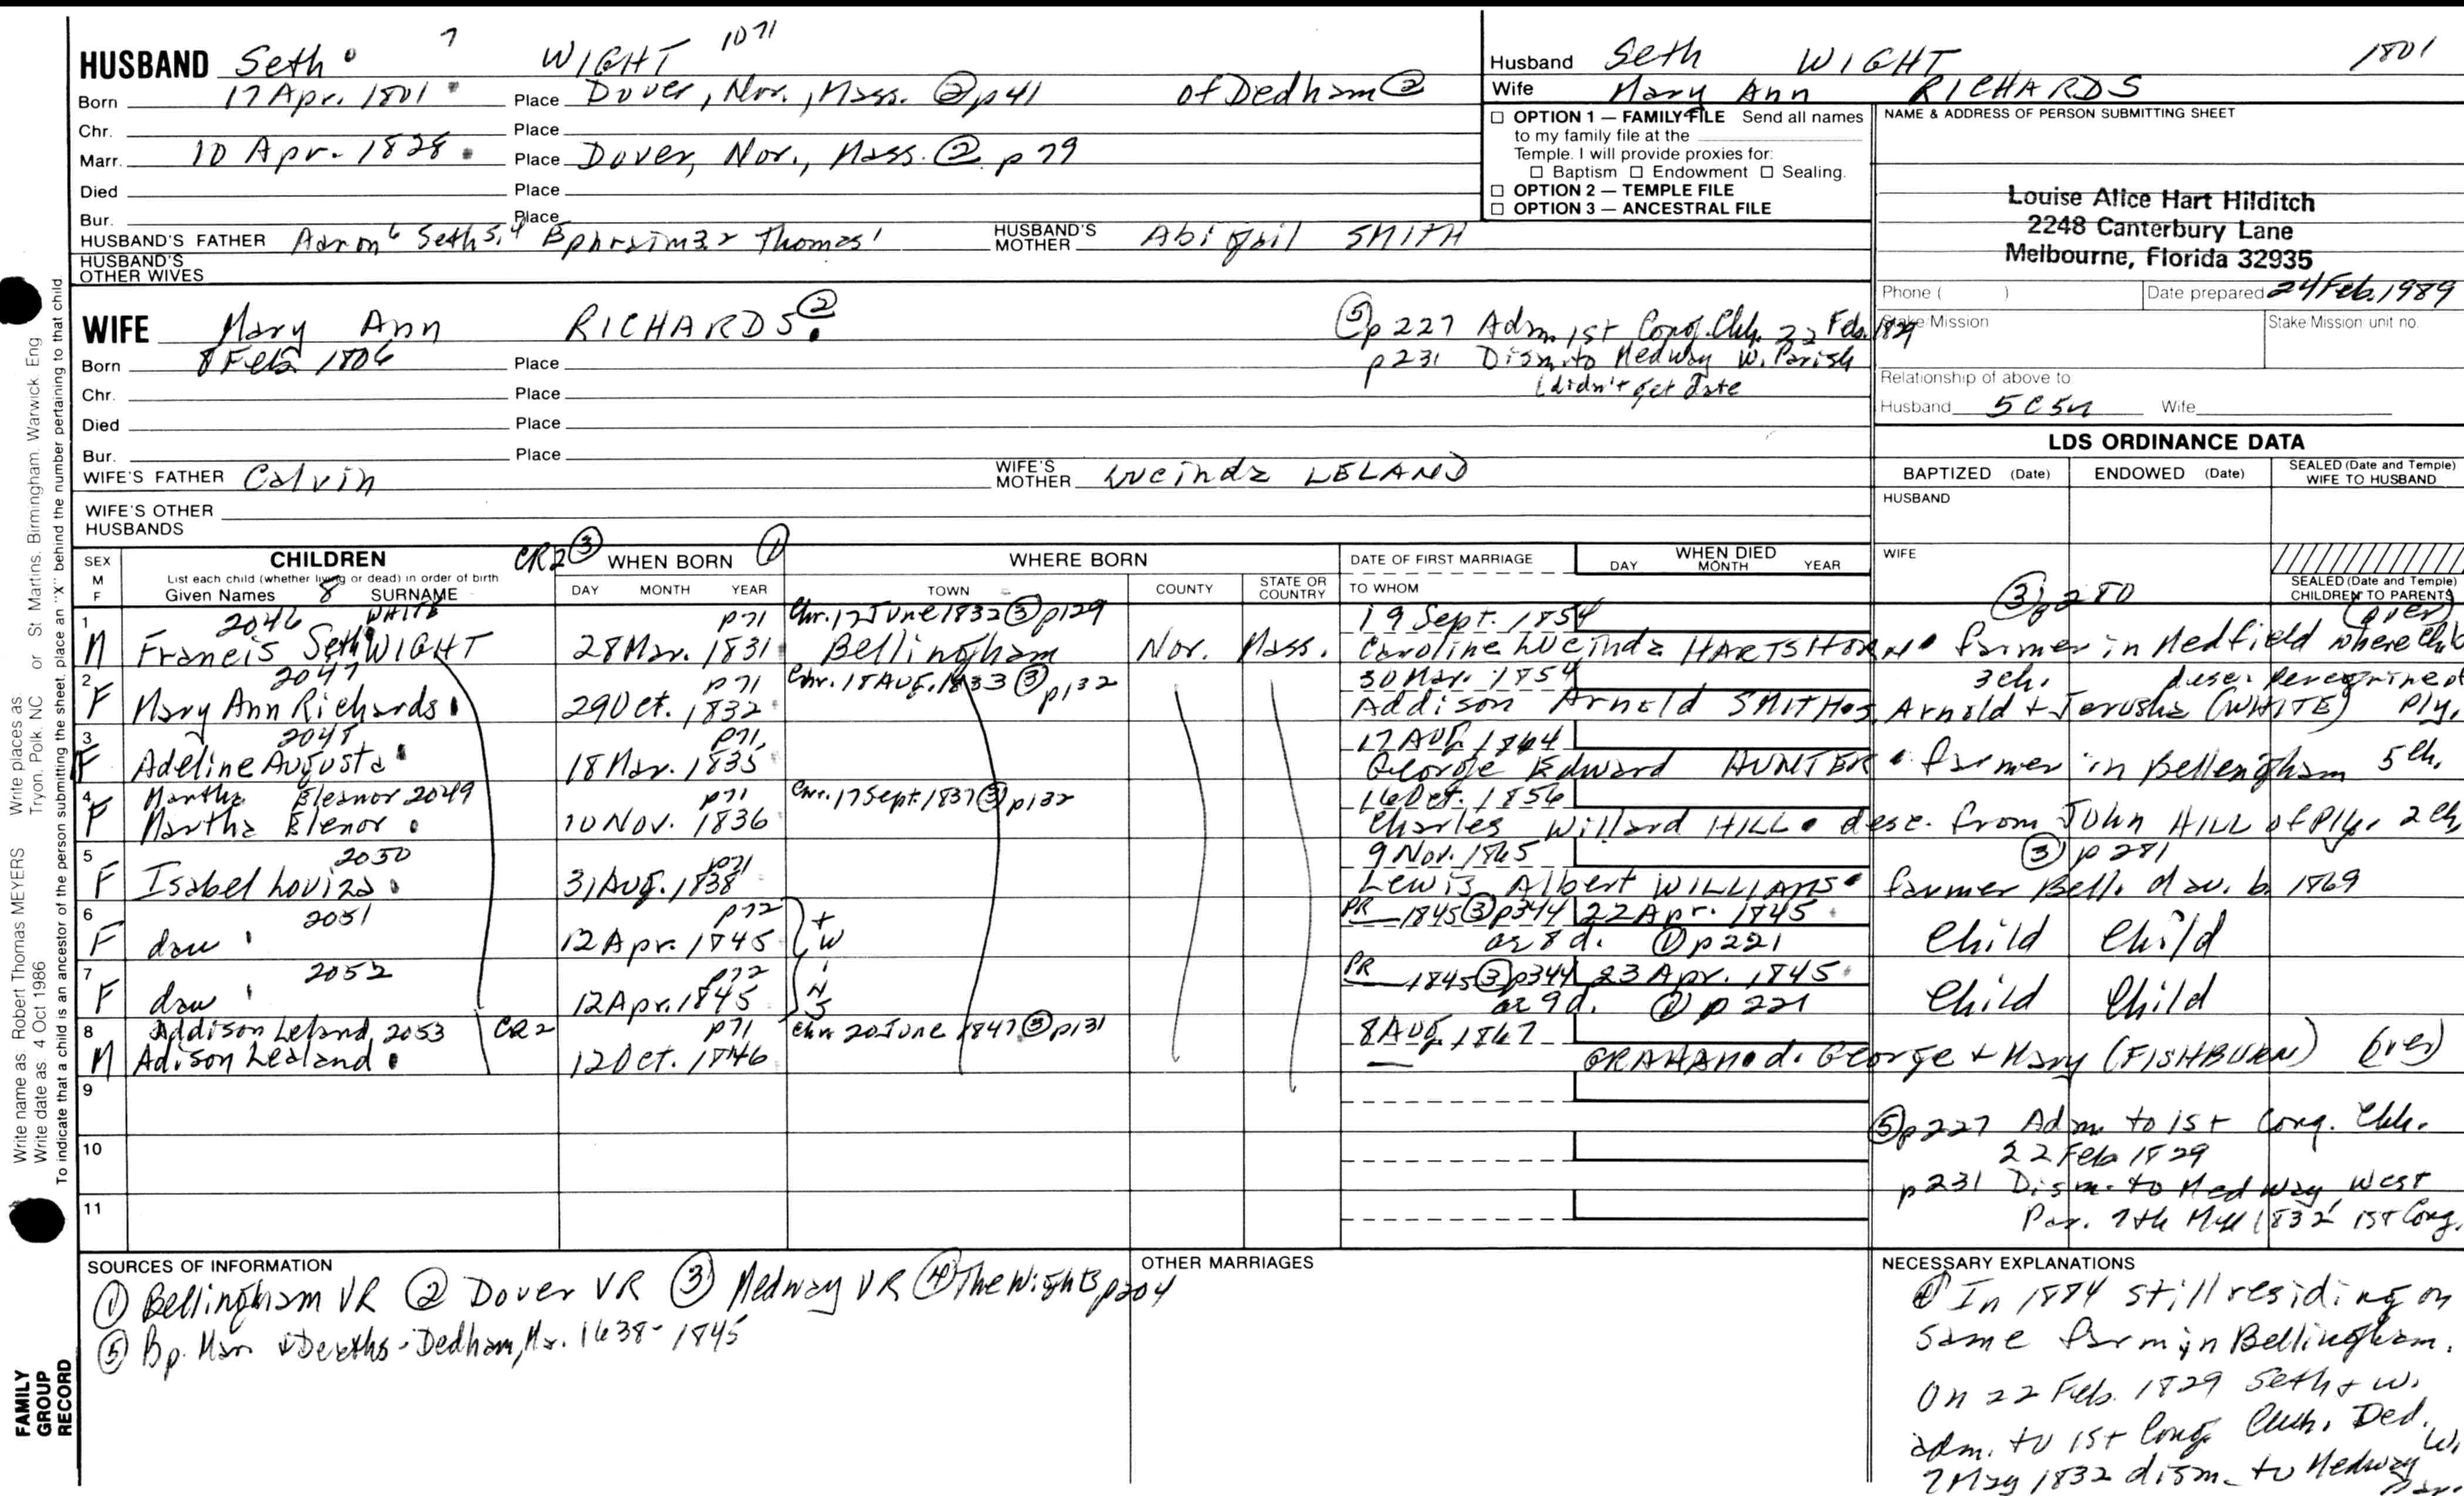 HUSBAND Seth 7 WIGHT 1071
Born 17 Apr. 1801 Place Dover, Nor., Mass. ② p41 of Dedham ②
Chr. Place
Marr. 10 Apr. 1828 Place Dover, Nor., Mass. ② p79
Died Place
Bur. Place
HUSBAND'S FATHER Aaron⁶ Seth⁵,⁴ Ephraim³,² Thomas¹ HUSBAND'S MOTHER Abigail SMITH
HUSBAND'S OTHER WIVES
Husband Seth WIGHT 1801
Wife Mary Ann RICHARDS
☐ OPTION 1 — FAMILY FILE Send all names
to my family file at the
Temple. I will provide proxies for:
☐ Baptism ☐ Endowment ☐ Sealing.
☐ OPTION 2 — TEMPLE FILE
☐ OPTION 3 — ANCESTRAL FILE
NAME & ADDRESS OF PERSON SUBMITTING SHEET
Louise Alice Hart Hilditch
2248 Canterbury Lane
Melbourne, Florida 32935
Phone ( ) Date prepared 24 Feb. 1989
Stake/Mission Stake/Mission unit no.
Relationship of above to
Husband 5C5R Wife
WIFE Mary Ann RICHARDS ②
⑤ p227 Adm 1st Cong. Chh. 22 Feb. 1829
p231 Dism. to Medway W. Parish
(didn't get date
Born 8 Feb 1806 Place
Chr. Place
Died Place
Bur. Place
WIFE'S FATHER Calvin WIFE'S MOTHER Lucinda LELAND
WIFE'S OTHER HUSBANDS
LDS ORDINANCE DATA
BAPTIZED (Date) ENDOWED (Date) SEALED (Date and Temple) WIFE TO HUSBAND
HUSBAND
WIFE
SEALED (Date and Temple) CHILDREN TO PARENTS
SEX M F
CHILDREN
List each child (whether living or dead) in order of birth
Given Names 8 SURNAME
CR2 ③ WHEN BORN ①
DAY MONTH YEAR
WHERE BORN
TOWN COUNTY STATE OR COUNTRY
DATE OF FIRST MARRIAGE
TO WHOM
WHEN DIED
DAY MONTH YEAR
1 2046 WHITE p71 Chr. 17 June 1832 ③ p129 19 Sept. 1854 ③ p280 (over)
M Francis Seth WIGHT 28 Mar. 1831 Bellingham Nor. Mass. Caroline Lucinda HARTSHORN farmer in Medfield where
2 2047 p71 Chr. 18 Aug. 1833 ③ p132 30 Mar. 1854 3 ch. desc. Peregrine of
F Mary Ann Richards 29 Oct. 1832 Addison Arnold SMITH s Arnold + Jerusha (WHITE) Ply.
3 2048 p71 17 Aug 1864
F Adeline Augusta 18 Mar. 1835 George Edward HUNTER farmer in Bellengham 5 ch.
4 Martha Eleanor 2049 p71 Chr. 17 Sept. 1837 ③ p132 16 Oct. 1856
F Martha Elenor 10 Nov. 1836 Charles Willard HILL desc. from JOHN HILL of Ply. 2 ch
5 2050 p71 9 Nov. 1865 ③ p281
F Isabel Loviza 31 Aug. 1838 Lewis Albert WILLIAMS farmer Bell. dau. b. 1869
6 2051 p72 PR 1845 ③ p344 22 Apr. 1845
F dau 12 Apr. 1845 ae 8 d. ① p221 Child Child
7 2052 p72 PR 1845 ③ p344 23 Apr. 1845
F dau 12 Apr. 1845 ae 9 d. ① p221 Child Child
tWiNS
8 Addison Leland 2053 CR2 p71 Chr. 20 June 1847 ③ p131 8 Aug. 1867
M Adison Lealand 12 Oct. 1846 — GRAHAM d. George + Mary (FISHBURN) (over)
9
10
11
⑤ p227 Adm. to 1st Cong. Chh.
22 Feb 1829
p231 Dism. to Medway West
Par. 7th May 1832 1st Cong.
SOURCES OF INFORMATION
① Bellingham VR ② Dover VR ③ Medway VR ④ The Wights p204
⑤ Bp. Marr + Deaths - Dedham, Ma. 1638-1845
OTHER MARRIAGES
NECESSARY EXPLANATIONS
④ In 1884 still residing on
same farm in Bellingham.
On 22 Feb. 1829 Seth + w.
adm. to 1st Cong. Chch. Ded.
7 May 1832 dism. to Medway W.
Par.
Write name as: Robert Thomas MEYERS Write places as: Tryon, Polk, NC or St Martins, Birmingham, Warwick, Eng
Write date as: 4 Oct 1986
To indicate that a child is an ancestor of the person submitting the sheet, place an "X" behind the number pertaining to that child.
FAMILY
GROUP
RECORD